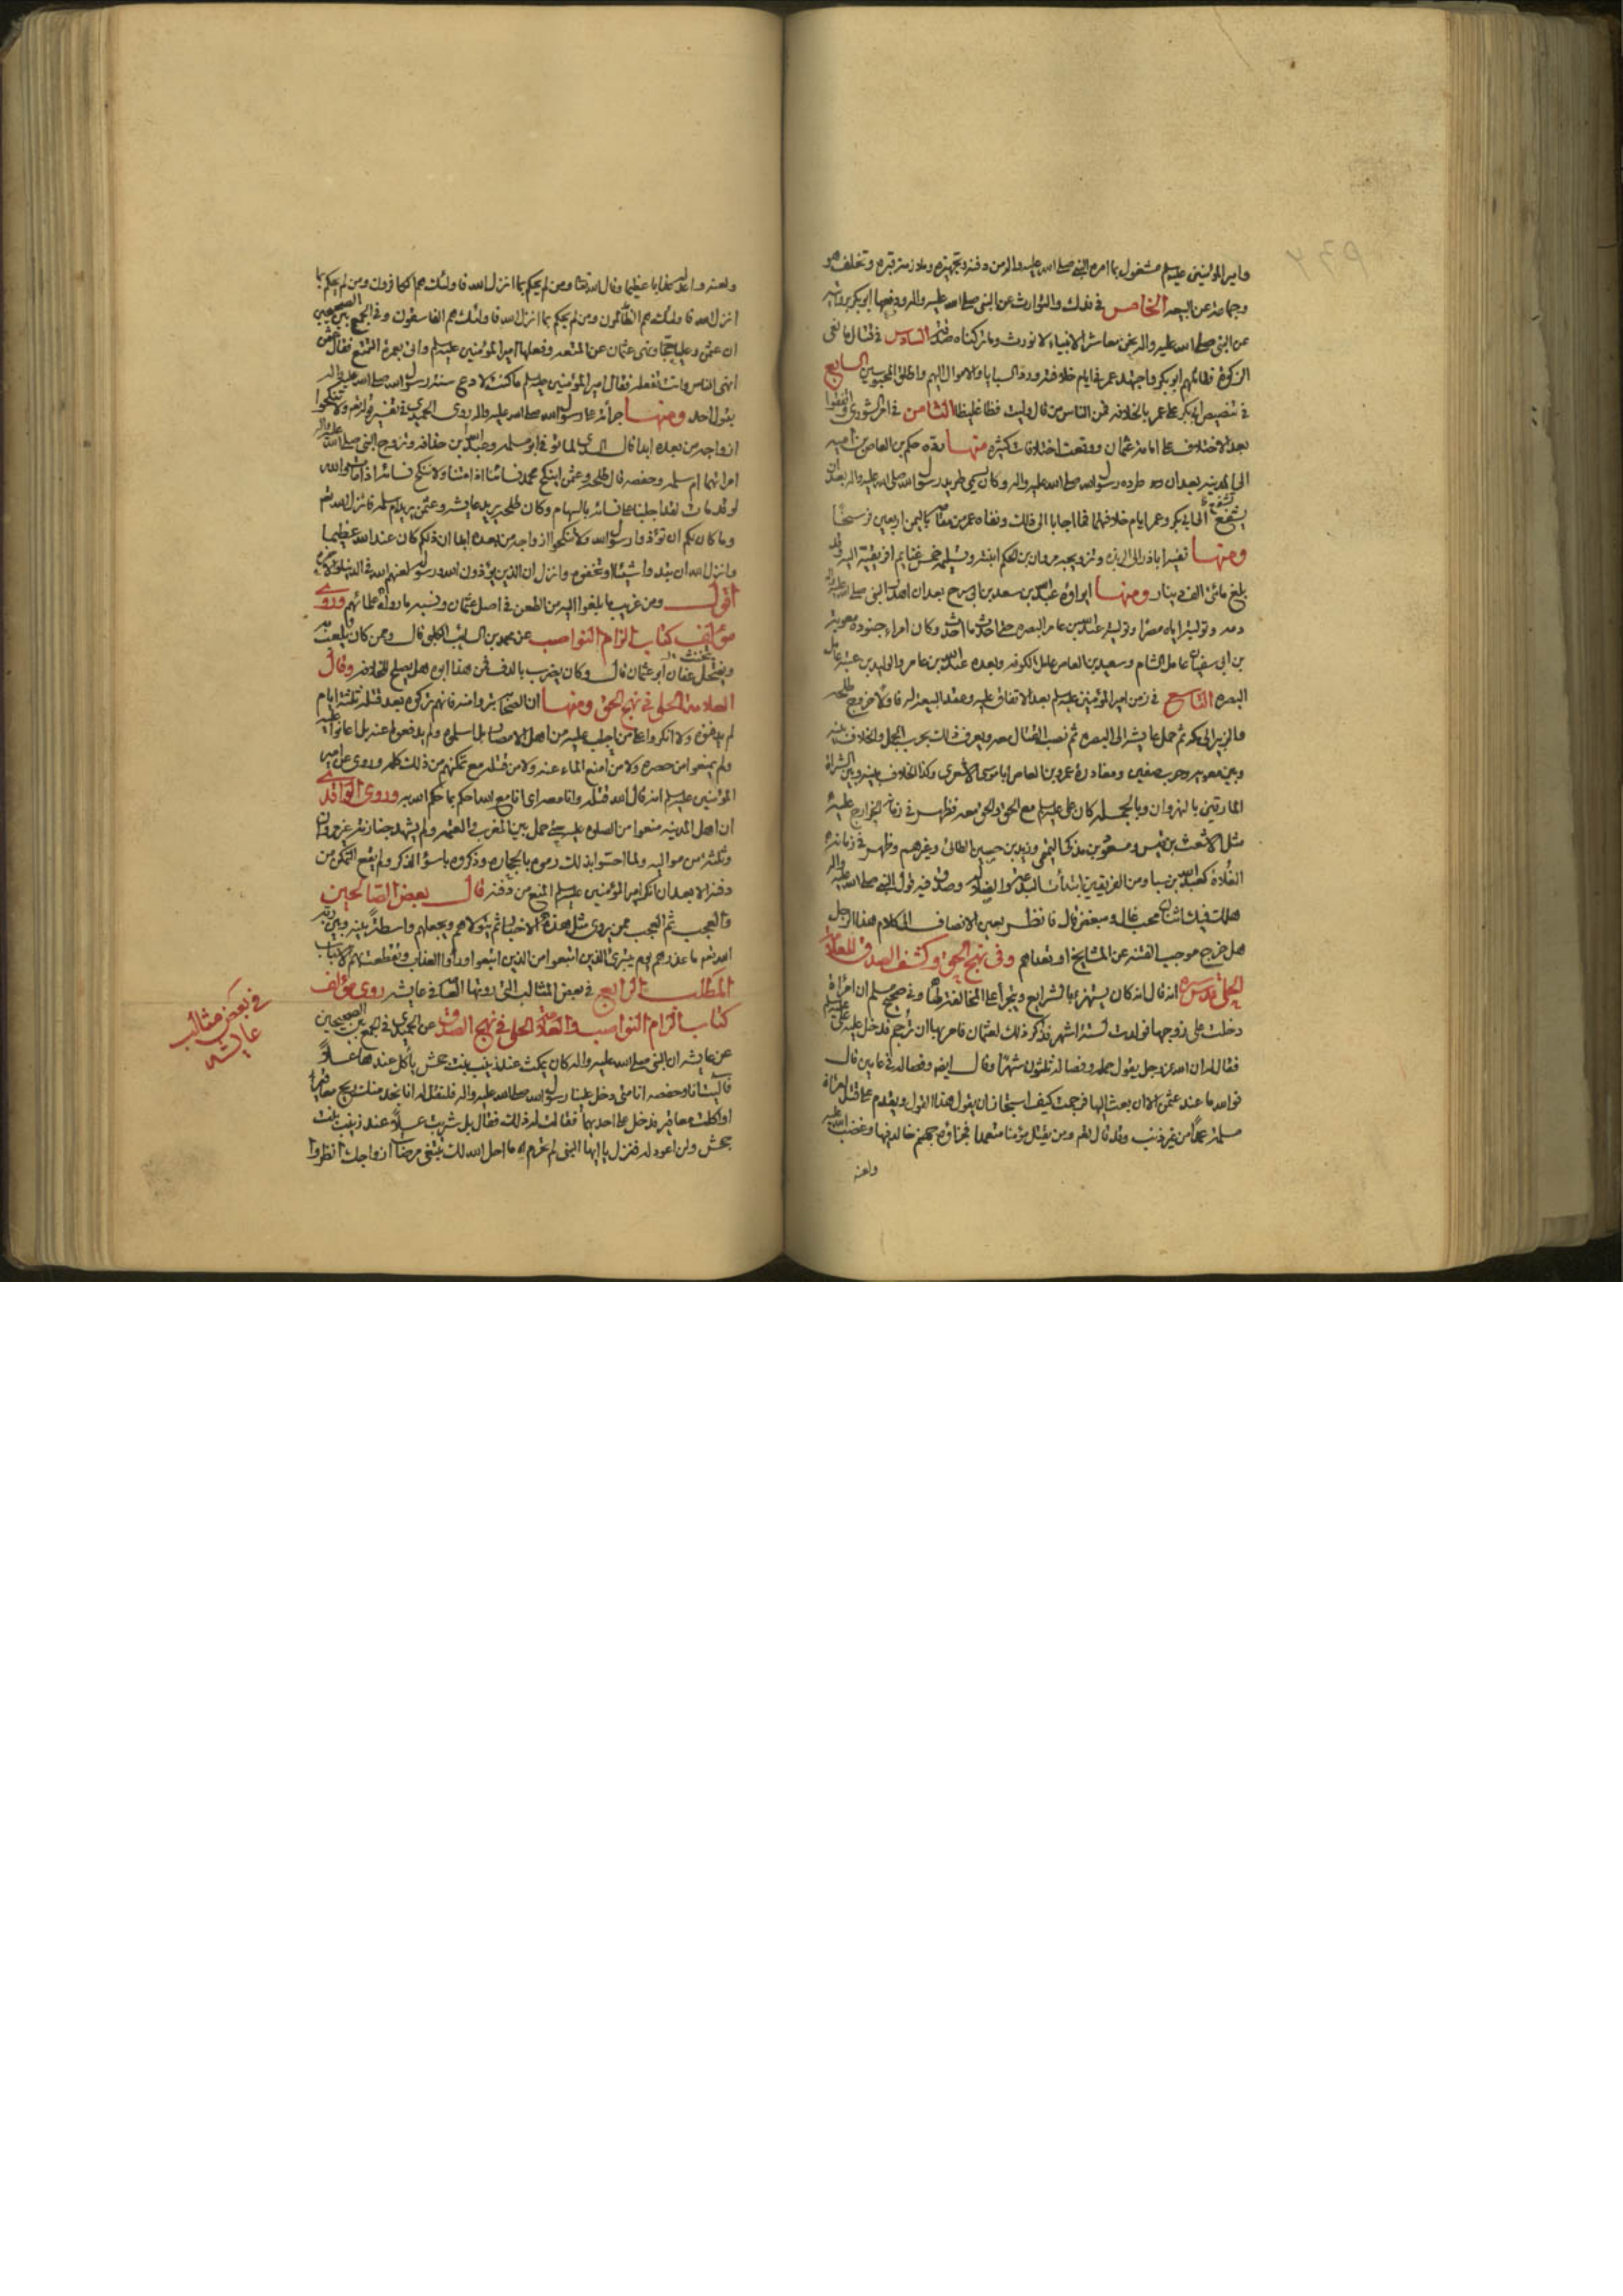 وامير المؤمنين عليه السلم مشغول بما امره النبي صلى الله عليه واله من دفنه وتجهيزه وملازمته قبره وتخلف هو
وجماعة عن البيعه الخامس في فدك والتوارث عن النبي صلى الله عليه واله ودفعها ابو بكر بروايته
عن النبي صلى الله عليه واله نحن معاشر الانبياء لا نورث وما تركناه صدقة السادس في قتال مانعي
الزكوة فقاتلهم ابو بكر واجتهد عمر في ايام خلافته ورد السبايا والاموال اليهم واطلق المحبوسين السابع
في تنصيص ابي بكر على عمر بالخلافه فمن الناس من قال وليت فظا غليظا الثامن في امر الشورى واتفقوا
بعد الاختلاف على امامة عثمان ووقعت اختلافات كثيره منها رده حكم بن العاص بن اميه
الى المدينه بعد ان طرده رسول الله صلى الله عليه واله وكان يسمى طريد رسول الله صلى الله عليه واله بعد ان
يشفع الى ابي بكر وعمر ايام خلافتهما فما اجابا الى ذلك ونفاه عمر من مقامه باليمن اربعين فرسخا
ومنها نفيه اباذر الى الربذه وتزويجه مروان بن الحكم ابنته وتسليمه خمس غنايم افريقية اليه وقد
بلغ مائتي الف دينار ومنها ايواؤه عبد الله بن سعد بن ابي سرح بعد ان اهدر النبي صلى الله عليه واله
دمه وتوليته اياه مصرا وتوليته عبد الله بن عامر البصره حتى احدث ما احدث وكان امراء جنوده معوية
بن ابي سفيان عامل الشام وسعيد بن العاص عامل الكوفه وبعده عبد الله بن عامر والوليد بن عتبه عامل
البصره التاسع في زمن امير المؤمنين عليه السلم بعد الاتفاق عليه وعقد البيعة له فاولا خروج طلحه
والزبير الى مكه ثم حمل عايشه الى البصره ثم نصب القتال معه ويعرف ذلك بحرب الجمل والخلاف بينه
وبين معويه وحرب صفين ومغادرة عمرو بن العاص ابا موسى الاشعرى وكذا الخلاف بينه وبين الشراة
المارقين بالنهروان وبالجمله كان علي عليه السلم مع الحق والحق معه فظهر في زمانه الخوارج عليه
مثل الاشعث بن قيس ومسعود بن مذكى التميمي وزيد بن حصين الطائى وغيرهم وظهر في زمانه
الغلاة كعبد الله بن سبا ومن الفريقين ابتدأت البدعة والضلالة وصدق فيه قول النبي صلى الله عليه واله
هلك فيك اثنان محب غال ومبغض قال فانظر بعين الانصاف الى كلام هذا الرجل
هل خرج موجب الفتنه عن المشايخ او تعداهم وفي نهج الحق وكشف الصدق للعلامة
الحلي قدس سره انه قال انه كان يستهزء بالشرايع ويتجرأ على المخالفة لها وفي صحيح مسلم ان امرأة
دخلت على زوجها فولدت لستة اشهر فذكر ذلك لعثمان فامر بها ان ترجم فدخل عليه علي عليه السلم
فقال له ان الله عز وجل يقول حمله وفصاله ثلثون شهرا وقال ايضا وفصاله في عامين قال
فوالله ما عند عثمن الا ان بعث اليها فرجمت كيف استجاز ان يقول هذا القول ويقدم على قتل امرأة
مسلمة عمدا من غير ذنب وقد قال الله ومن يقتل مؤمنا متعمدا فجزاؤه جهنم خالدا فيها وغضب الله عليه
ولعنه
ولعنه واعد له عذابا عظيما وقال الله تعالى ومن لم يحكم بما انزل الله فاولئك هم الكافرون ومن لم يحكم بما
انزل الله فاولئك هم الظالمون ومن لم يحكم بما انزل الله فاولئك هم الفاسقون وفي الجمع بين الصحيحين
ان عثمن وعليا حجا ونهى عثمان عن المتعه وفعلها امير المؤمنين عليه السلم واتى بعمرة التمتع فقال عثمن
انهى الناس وانت تفعله فقال امير المؤمنين عليه السلم ما كنت لادع سنة رسول الله صلى الله عليه واله
بقول احد ومنها جرأته على رسول الله صلى الله عليه واله روى الحميدي في تفسير قوله تعالى ولا تنكحوا
ازواجه من بعده ابدا قال السدى لما توفي ابو سلمه وعبد الله بن حذافه وتزوج النبي صلى الله عليه واله
امراتهما ام سلمه وحفصه قال طلحه وعثمن اينكح محمد نسائنا اذا متنا ولا ننكح نسائه اذا مات والله
لو قد مات لقد اجلبنا على نسائه بالسهام وكان طلحه يريد عايشه وعثمن يريد ام سلمه فانزل الله تعالى
وما كان لكم ان تؤذوا رسول الله ولا تنكحوا ازواجه من بعده ابدا ان ذلكم كان عند الله عظيما
وانزل الله ان تبدوا شيئا او تخفوه وانزل ان الذين يؤذون الله ورسوله لعنهم الله في الدنيا والاخرة
اقول ومن غريب ما بلغوا اليه من الطعن في اصل عثمان ونسبه ما رواه علمائهم وروى
مؤلف كتاب الزام النواصب عن محمد بن السايب الكلبي قال وممن كان يلعب به
ويتخنث عفان ابو عثمان قال وكان يضرب بالدف فمن هذا ابوه هل يصلح للخلافه وقال
العلامة الحلي في نهج الحق ومنها ان الصحابة تبروا منه فانهم تركوه بعد قتله ثلثة ايام
لم يدفنوه ولا انكروا على من اجلب عليه من اهل الامصار بل اسلموه ولم يدفعوا عنه بل اعانوا عليه
ولم يمنعوا من حصره ولا من منع الماء عنه ولا من قتله مع تمكنهم من ذلك كله وروى عن امير
المؤمنين عليه السلم انه قال الله قتله وانا معه اى انا مع الله احكم بما حكم الله به وروى الواقدى
ان اهل المدينه منعوا من الصلوه عليه حتى حمل بين المغرب والعتمه ولم يشهد جنازته غير مروان
وثلثة من مواليه ولما احسوا بذلك رموه بالحجاره وذكروه باسوأ الذكر ولم يقع التمكن من
دفنه الا بعد ان انكر امير المؤمنين عليه السلم المنع من دفنه قال بعض الصالحين
والعجب ثم العجب ممن يروى مثل هذه الاخبار ثم يتولاهم ويجعلهم واسطة بينه وبين ربه
الله تعالى ما عذرهم يوم يتبرئ الذين اتبعوا من الذين اتبعوا وراوا العذاب وتقطعت بهم الاسباب
المطلب الرابع في بعض المثالب التي روتها العامة في عايشه روى مؤلف
كتاب الزام النواصب والعلامة الحلي في نهج الصدق عن الحميدي في الجمع بين الصحيحين
عن عايشه ان النبي صلى الله عليه واله كان يمكث عند زينب بنت جحش يأكل عندها عسلا
فآليت انا وحفصه انا متى دخل علينا رسول الله صلى الله عليه واله فلنقل له انا نجد منك ريح مغافير
او اكلت مغافير فدخل على احديهما فقالت له ذلك فقال بل شربت عسلا عند زينب بنت
جحش ولن اعود له فنزل يا ايها النبي لم تحرم ما احل الله لك تبتغي مرضات ازواجك انظروا
في بعض مثالب
عايشه